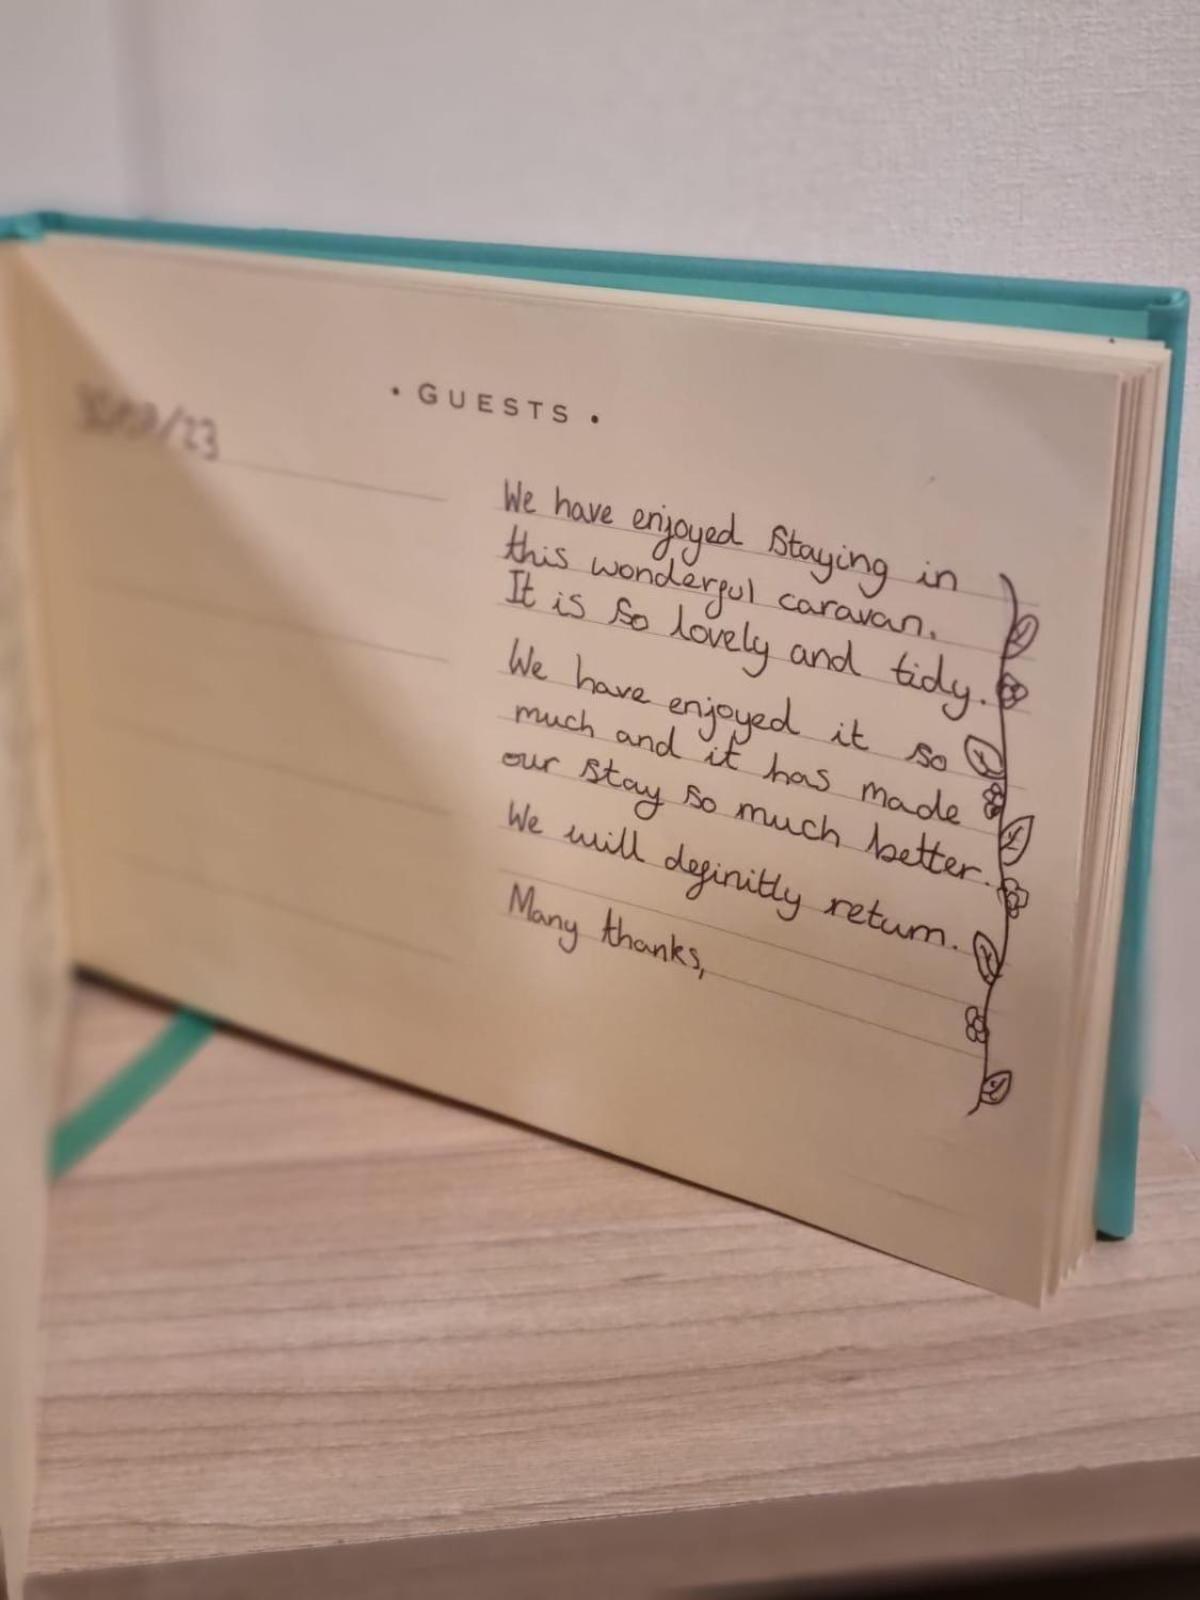 • GUESTS •
/23
We have enjoyed staying in
this wonderful caravan.
It is so lovely and tidy.
We have enjoyed it so
much and it has made
our stay so much better.
We will definitly return.
Many thanks,